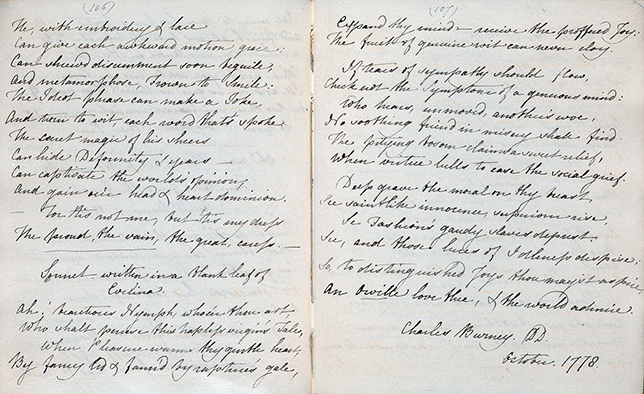 (106)
He, with embroidery & lace
Can give each awkward motion grace:
Can shrewd discernment soon beguile,
and metamorphose, Frown to Smile:
The Idiot phrase can make a Joke,
And turn to wit each word that's spoke
The secret magic of his sheers
Can hide Deformity & years —
Can captivate the world's opinion,
And gain o'er head & heart dominion.
— For tis not me, but tis my dress
The proud, the vain, the great, caress. —
Sonnet written in a blank leaf of
Evelina.
Ah! beauteous Nymph, whoe'er thou art,
Who shalt peruse this hapless virgin's Tale,
When Pleasure warms thy gentle heart,
By fancy led & fann'd by rapture's gale,
(107)
Expand thy mind — receive the proffered Joy:
The fruits of genuine wit can never cloy.
If tears of sympathy should flow,
Check not the Symptoms of a generous mind:
Who hears, unmoved, another's woe,
No soothing friend in misery shall find
The pitying bosom claims a sweet relief,
When virtue bills to ease the social grief.
Deep grave the moral on thy breast,
See saintlike innocence, superiour rise,
See Fashion's gaudy slaves deprest,
See, and those lures of Idleness despise;
So, to distinguished Joys thou mayst aspire,
An Orville love thee, & the world admire.
Charles Burney. DD.
October. 1778.